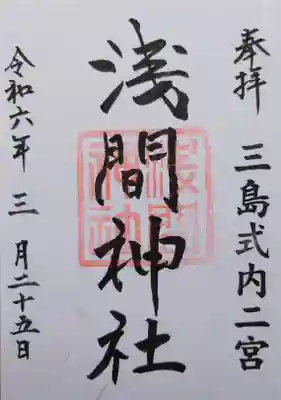 奉拝 三島式内二宮
浅間神社
令和六年三月二十五日
浅間
神社